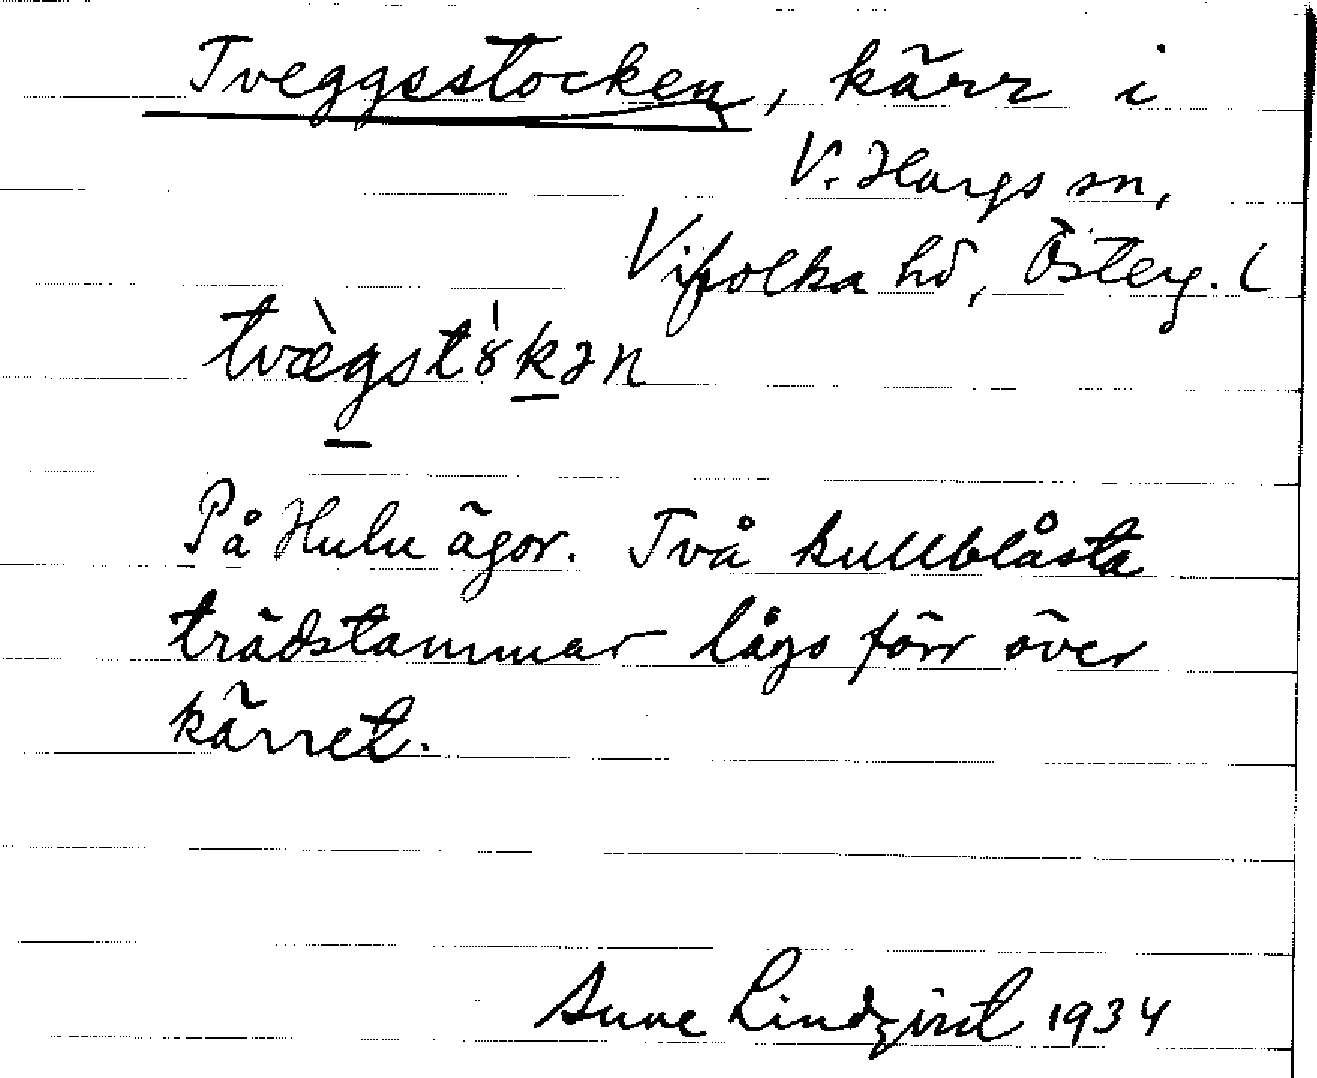 Tveggsstocken, kärr i
V. Hargs sn,
Vifolka hd, Österg. l
tvæ̀gstɤ̍kən
På Hulu ägor. Två kullblåsta
trädstammar lågo förr över
kärret.
Sune Lindqvist 1934